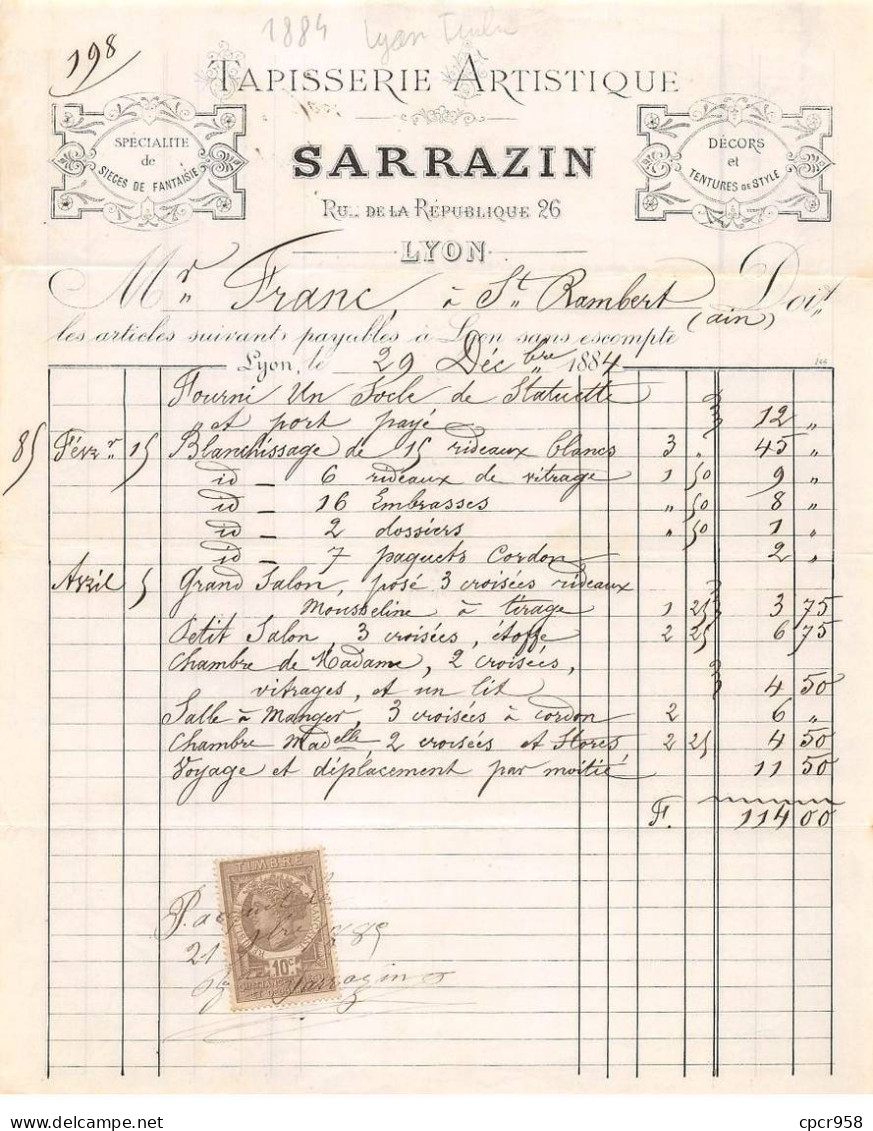 1884 Lyon
198
TAPISSERIE ARTISTIQUE
SPÉCIALITÉ
de
SIEGES DE FANTAISIE
SARRAZIN
DÉCORS
et
TENTURES DE STYLE
RUE DE LA RÉPUBLIQUE 26
LYON
Mr Franc, à St Rambert Doit
(ain)
les articles suivants payables à Lyon sans escompte
Lyon, le 29 Décbre 1884
Fourni Un Socle de Statuette
et port payé 12 "
85 Févr 15 Blanchissage de 15 rideaux blancs 3 " 45 "
id — 6 rideaux de vitrage 1 50 9 "
id — 16 Embrasses " 50 8 "
id — 2 dossiers " 50 1 "
id — 7 paquets Cordon 2 "
Avril 5 Grand Salon, posé 3 croisées rideaux
Mousseline à tirage 1 25 3 75
Petit Salon, 3 croisées, étoffe 2 25 6 75
Chambre de Madame, 2 croisées,
vitrages, et un lit 4 50
Salle à Manger, 3 croisées à cordon 2 6 "
Chambre Madelle, 2 croisées et Stores 2 25 4 50
Voyage et déplacement par moitié 11 50
F. 114 00
TIMBRE
21 85
10c
Sarrazin
cpcr958